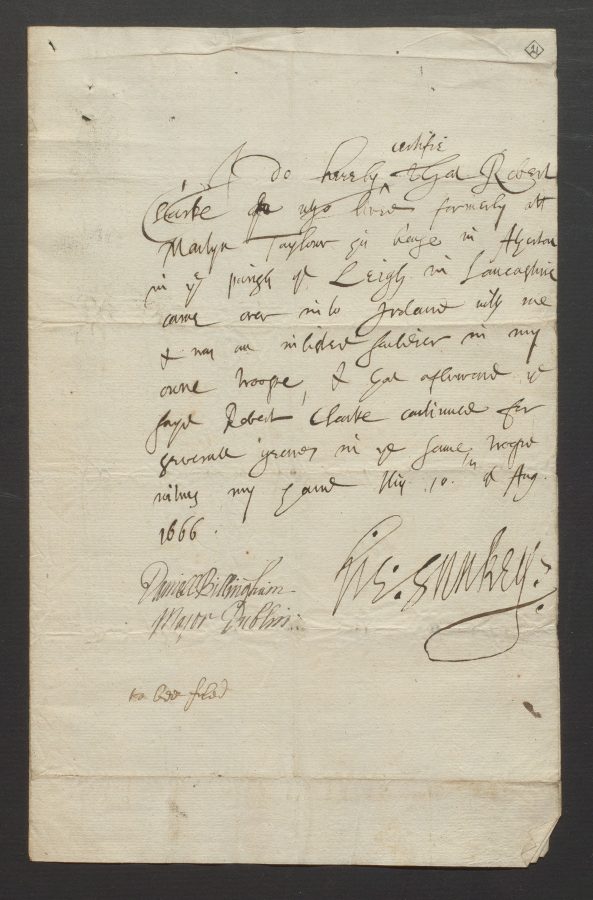 21
certifie
I do hereby that Robert
Clarke who lived formerly att
Martyn Taylour his house in Aherton
in ye parish of Leigh in Lancashire
came over into Ireland with me
& was an inlisted souldier in my
owne troope, & that afterward ye
sayd Robert Clarke continued for
severall yeares in ye same troope
witnes my hand this 10th of Aug.
1666.
Hie: Sankey:
Daniell Bellingham
Maior Dublin:
to bee filed